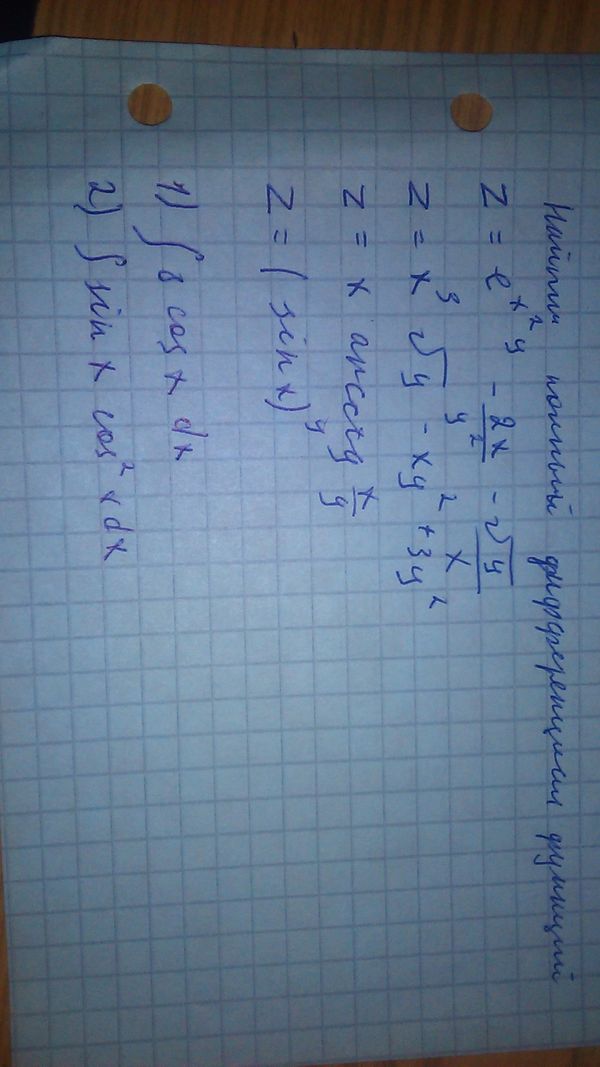 Найти полный дифференциал функций
z = e^{x^2 y} - \frac{2x}{y^2} - \frac{\sqrt{y}}{x}
z = x^3 \sqrt{y} - xy^2 + 3y^2
z = x arcctg \frac{x}{y}
z = (sin x)^y
1) ∫ 8 cos x dx
2) ∫ sin x cos^2 x dx